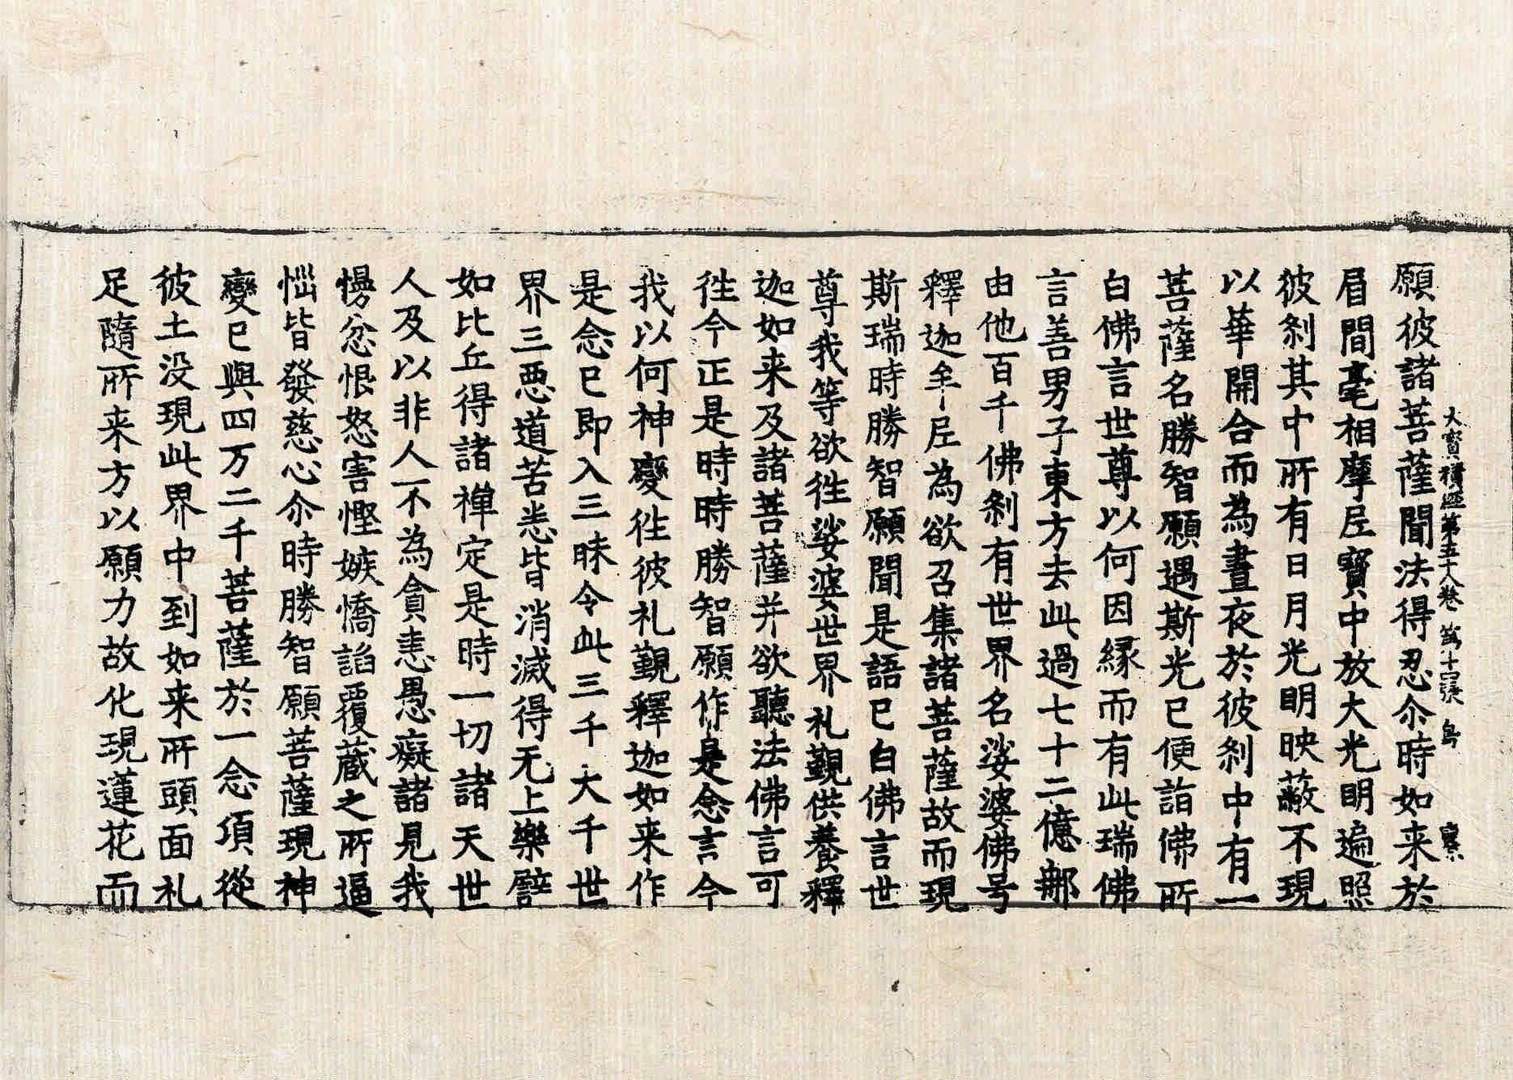 大寶積經第五十八卷 苐十四張 鳥
願彼諸菩薩聞法得忍尒時如来於
眉間毫相摩尼寶中放大光明遍照
彼刹其中所有日月光明映蔽不現
以華開合而為晝夜於彼刹中有一
菩薩名勝智願遇斯光已便詣佛所
白佛言世尊以何因縁而有此瑞佛
言善男子東方去此過七十二億那
由他百千佛刹有世界名娑婆佛号
釋迦牟尼為欲召集諸菩薩故而現
斯瑞時勝智願聞是語已白佛言世
尊我等欲徃娑婆世界礼覲供養釋
迦如来及諸菩薩并欲聽法佛言可
徃今正是時時勝智願作是念言今
我以何神變徃彼礼覲釋迦如来作
是念已即入三昧令此三千大千世
界三惡道苦悉皆消滅得无上樂譬
如比丘得諸禪定是時一切諸天世
人及以非人不為貪恚愚癡諸見我
慢忿恨怒害慳嫉憍諂覆藏之所逼
惱皆發慈心尒時勝智願菩薩現神
變已與四万二千菩薩於一念頃從
彼土没現此界中到如来所頭面礼
足隨所来方以願力故化現蓮花而